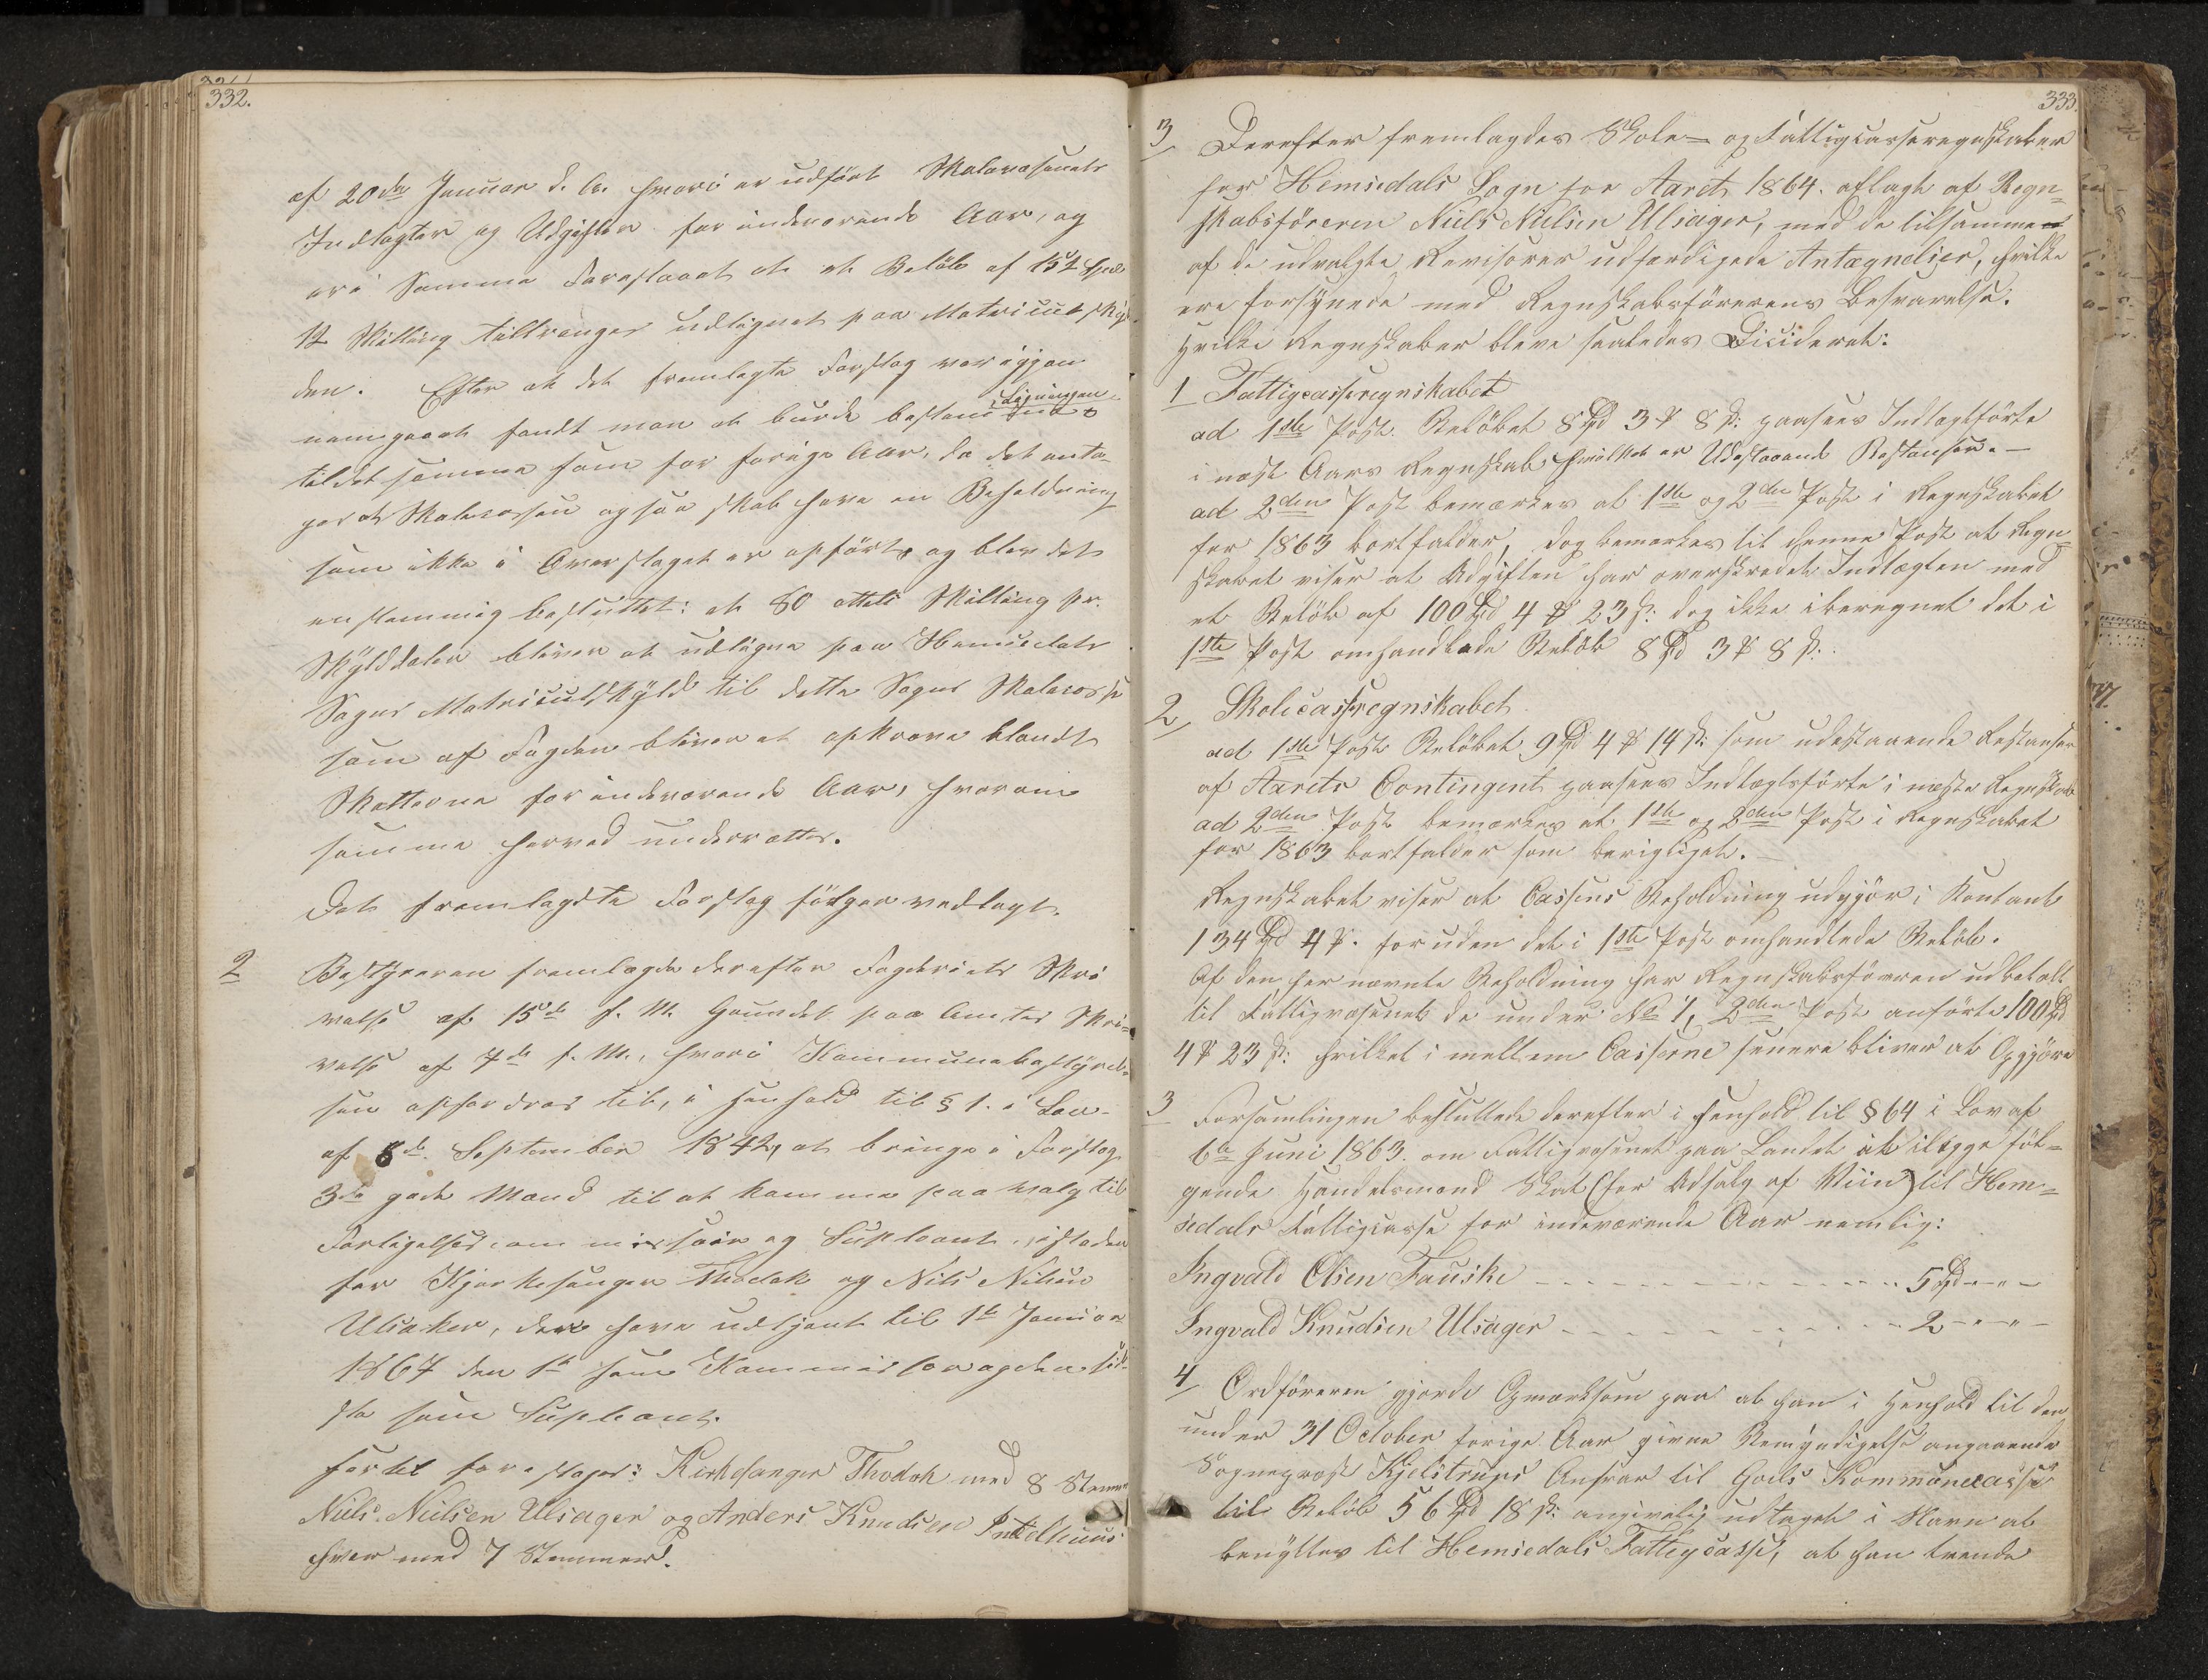 332.
af 20de Januar d. A. hvori er udført Skolevæsenets
Indtægter og Udgifter for indeværende Aar, og
er i Samme Foreslaaet at et Beløb af 152 Spd
12 Skilling tiltrænges udlignet paa Matriculskyl-
den. Efter at det fremlagte Forslag var igjen
nemgaaet fandt man at burde bestemme Ligningen
til det samme som for forrige Aar, da det anta-
ges at Skolecassen ogsaa skal have en Beholdning
som ikke i Overslaget er opført, og blev det
enstemmig besluttet: at 80 otteti Skilling pr.
Skylddaler bliver at udligne paa Hemsedals
Sogns Matriculskyld til dette Sogns Skolecasse
som af Fogden bliver at opkræve blandt
Skatterne for indeværende Aar, hvorom
samme herved underrettes.
Det fremlagdte Forslag følger vedlagt.
2 Bestyreren fremlagde derefter Fogderiets Skri
velse af 15de f. M. Grundet paa Amtes Skri-
velse af 7de f. M., hvori Kommunebestyrel-
sen opfordres til, i Henhold til § 1. i Lov
af 8de September 1842, at bringe i Forslag
3de gode Mænd til at komme paa Valg til
Forligelsescommissair og Supleant, istedet
for Kjerkesanger Thodok og Nils Nilsen
Ulsaker, der have udtjent til 1ste Januar
1867 den 1ste som Kommissær og den sid-
ste som Supleant.
Hertil foreslages: Kirkesanger Thodok med 8 Stemmer
Niels Nielsen Ulsager og Anders Knudsen Intelhuus
hver med 7 Stemmer.
333.
3 Derefter fremlagdes Skole- og Fattigcasseregnskaber
for Hemsedals Sogn for Aaret 1864. aflagt af Regn-
skabsføreren Niels Nielsen Ulsager, med de tilsammen
af de udvalgte Revisorer udfærdigede Antegnelser, hvilke
ere forsynede med Regnskabsførerens Besvarelse.
Hvilke Regnskaber bleve saaledes Decideret:
1 Fattigcasseregnskabet
ad 1ste Post. Beløbet 8 Spd 3 ℔ 8 s: paasees Indtægtsførte
i næst Aars Regnskab hvilket er Udestaaend Restanser.-
ad 2den Post bemærkes at 1ste og 2den Post i Regnskabet
for 1863 bortfalder, dog bemærkes til denne Post at Regn-
skabet viser at Udgiften har overskredet Indtægten med
et Beløb af 100 Spd 4 ℔ 23 s: dog ikke iberegnet det i
1ste Post omhandlede Beløb 8 Spd 3 ℔ 8 s:
2 Skolecasseregnskabet
ad 1ste Post Beløbet 9 Spd 4 ℔ 14 s: som udestaaende Restanser
af Aarets Contingent paasees Indtægtsførte i næste Regnskab
ad 2den Post bemærkes at 1ste og 2den Post i Regnskabet
for 1863 bortfalder som berigtiget.-
Regnskabet viser at Cassens Beholdning udgjør i Kontant
134 Spd 4 ℔. foruden det i 1ste Post omhandlede Beløb.
Af den her nævnte Beholdning har Regnskabsføreren udbetalt
til Fattigvæsenet de under No 1, 2den Post anførte 100 Spd
4 ℔ 23 s: hvilket imellem Casserne senere bliver at Opgjøre
3 Forsamlingen besluttede derefter i Henhold til § 64 i Lov af
6te Juni 1863. om Fattigvæsenet paa Landet at ilægge føl-
gende Handelsmænd Skat (for Udsalg af Viin) til Hem-
sedals Fattigcasse for indeværende Aar nemlig:
Ingvald Olsen Fauske - - - - - - - - - - - 5 Spd - " -
Ingvald Knudsen Ulsager - - - - - - - - - - 2 - " - " -
4 Ordføreren gjorde Opmærksom paa at han i Henhold til den
under 31 October forige Aar givne Bemyndigelse angaaende
Sogneprest Kjelstrups Ansvar til Goels Kommunecasse
til Beløb 56 Spd 18 s: angivelig udtaget i Navn at
benyttes til Hemsedals Fattigcasse, at han tvende